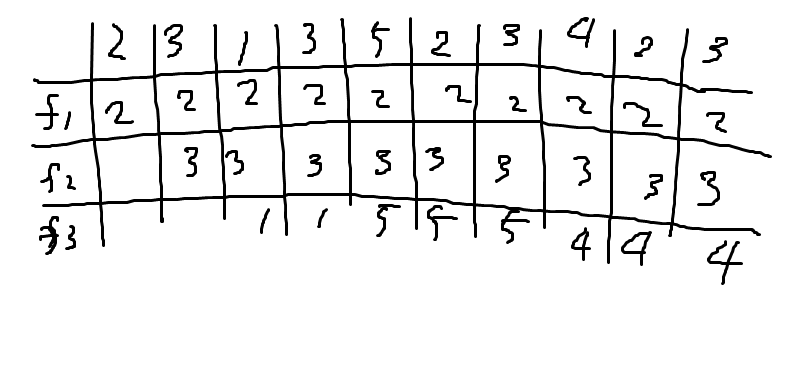 2 3 1 3 5 2 3 4 2 3
f1 2 2 2 2 2 2 2 2 2 2
f2 3 3 3 3 3 3 3 3 3
f3 1 1 5 5 5 4 4 4